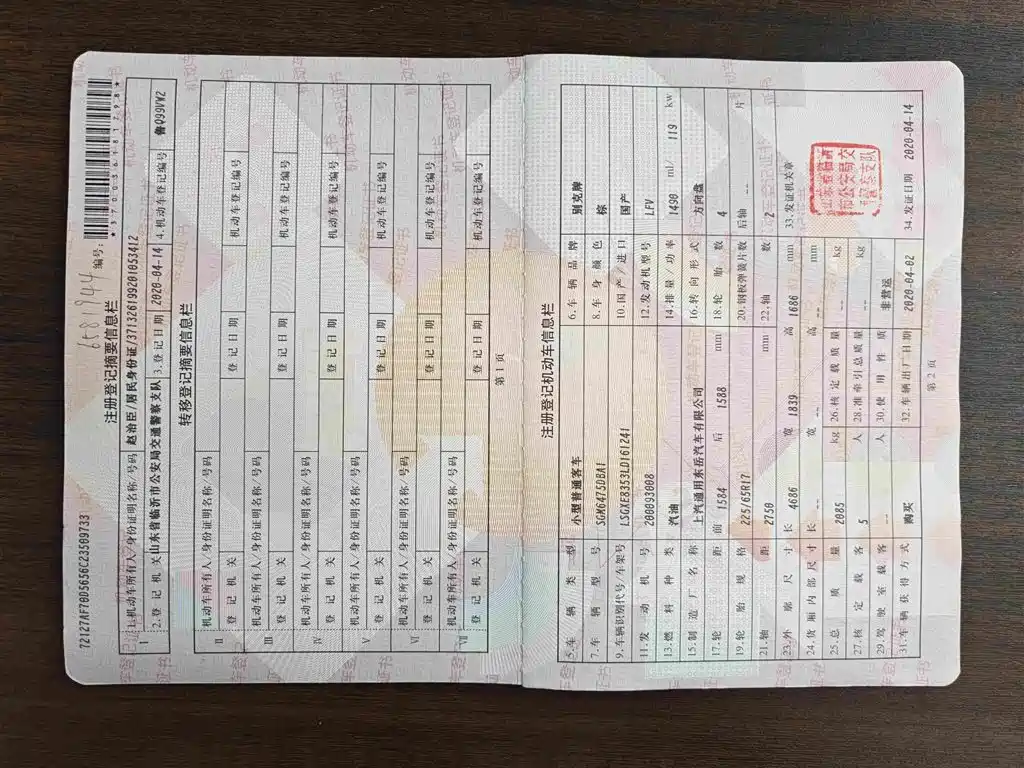 72127AF70D5656C23509733
6581944
编号:
*370036481798*
注册登记摘要信息栏
Ⅰ 1.机动车所有人/身份证明名称/号码 赵治臣/居民身份证/371326199201053412
2.登记机关 山东省临沂市公安局交通警察支队 3.登记日期 2020-04-14 4.机动车登记编号 鲁Q99VW2
转移登记摘要信息栏
Ⅱ 机动车所有人/身份证明名称/号码
登记机关 登记日期 机动车登记编号
Ⅲ 机动车所有人/身份证明名称/号码
登记机关 登记日期 机动车登记编号
Ⅳ 机动车所有人/身份证明名称/号码
登记机关 登记日期 机动车登记编号
Ⅴ 机动车所有人/身份证明名称/号码
登记机关 登记日期 机动车登记编号
Ⅵ 机动车所有人/身份证明名称/号码
登记机关 登记日期 机动车登记编号
Ⅶ 机动车所有人/身份证明名称/号码
登记机关 登记日期 机动车登记编号
第1页
注册登记机动车信息栏
5.车辆类型 小型普通客车 6.车辆品牌 别克牌
7.车辆型号 SGM6475DBA1 8.车身颜色 棕
9.车辆识别代号/车架号 LSGXE8353LD161241 10.国产/进口 国产
11.发动机号 200093008 12.发动机型号 LFV
13.燃料种类 汽油 14.排量/功率 1490 ml/ 119 kw
15.制造厂名称 上汽通用东岳汽车有限公司 16.转向形式 方向盘
17.轮距 前 1584 后 1588 mm 18.轮胎数 4
19.轮胎规格 225/65R17 20.钢板弹簧片数 后轴 -- 片
21.轴距 2750 mm 22.轴数 2
23.外廓尺寸 长 4686 宽 1839 高 1686 mm 33.发证机关章
24.货厢内部尺寸 长 -- 宽 -- 高 -- mm
25.总质量 2085 kg 26.核定载质量 -- kg
27.核定载客 5 人 28.准牵引总质量 -- kg
29.驾驶室载客 -- 人 30.使用性质 非营运
31.车辆获得方式 购买 32.车辆出厂日期 2020-04-02 34.发证日期 2020-04-14
第2页